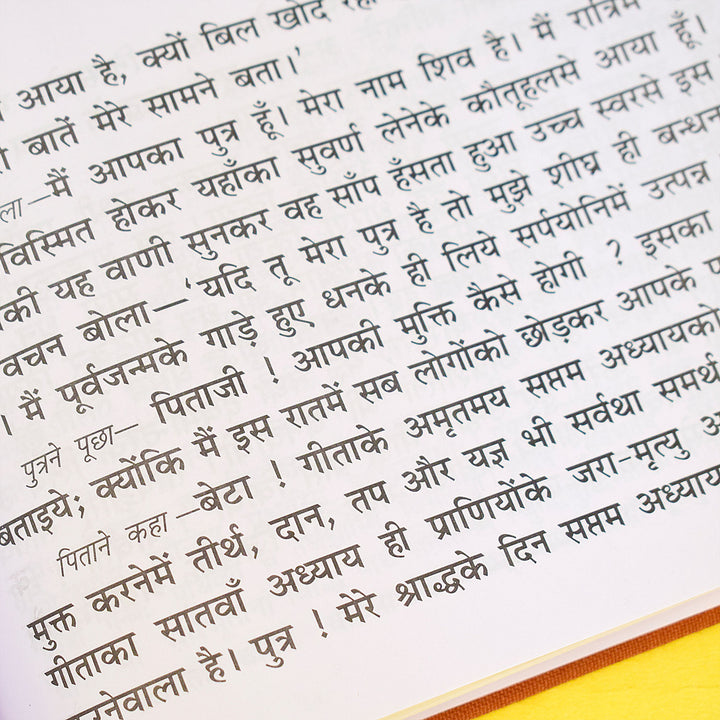 आया है, क्यों बिल खोद
बातें मेरे सामने बता।'
—मैं आपका पुत्र हूँ। मेरा नाम शिव है। मैं रात्रिमें
विस्मित होकर यहाँका सुवर्ण लेनेके कौतूहलसे आया हूँ।
की यह वाणी सुनकर वह साँप हँसता हुआ उच्च स्वरसे इस
वचन बोला—'यदि तू मेरा पुत्र है तो मुझे शीघ्र ही बन्धन
। मैं पूर्वजन्मके गाड़े हुए धनके ही लिये सर्पयोनिमें उत्पन्न
पुत्रने पूछा— पिताजी ! आपकी मुक्ति कैसे होगी ? इसका
बताइये; क्योंकि मैं इस रातमें सब लोगोंको छोड़कर आपके
पिताने कहा—बेटा ! गीताके अमृतमय सप्तम अध्यायको
मुक्त करनेमें तीर्थ, दान, तप और यज्ञ भी सर्वथा समर्थ
गीताका सातवाँ अध्याय ही प्राणियोंके जरा-मृत्यु
है। पुत्र ! मेरे श्राद्धके दिन सप्तम अध्याय